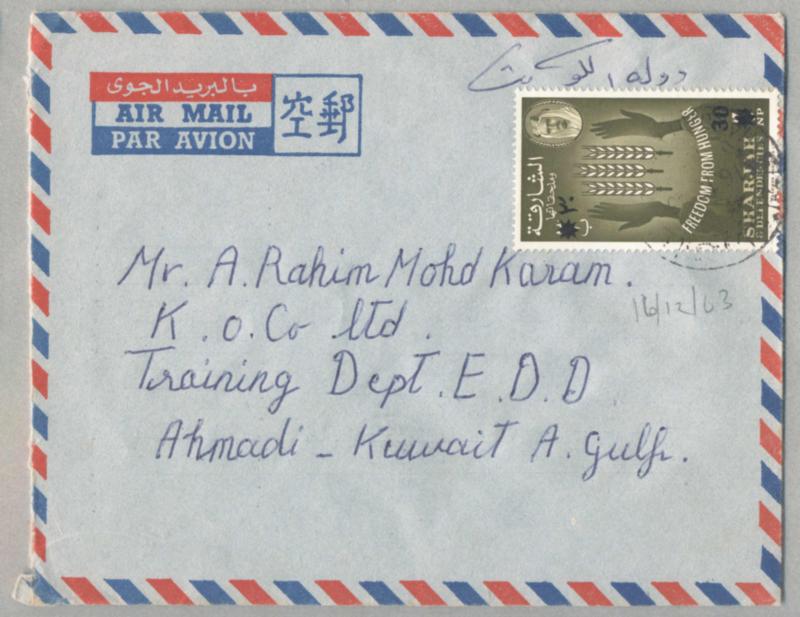 بالبريد الجوى
AIR MAIL
PAR AVION
空郵
دولة الكويت
30
NP
SHARJAH
& DEPENDENCIES
FREEDOM FROM HUNGER
الشارقة
وملحقاتها
٣٠
ب
Mr. A. Rahim Mohd Karam.
K.O.Co ltd.
Training Dept. E.D.D
Ahmadi - Kuwait A. Gulf.
16/12/63